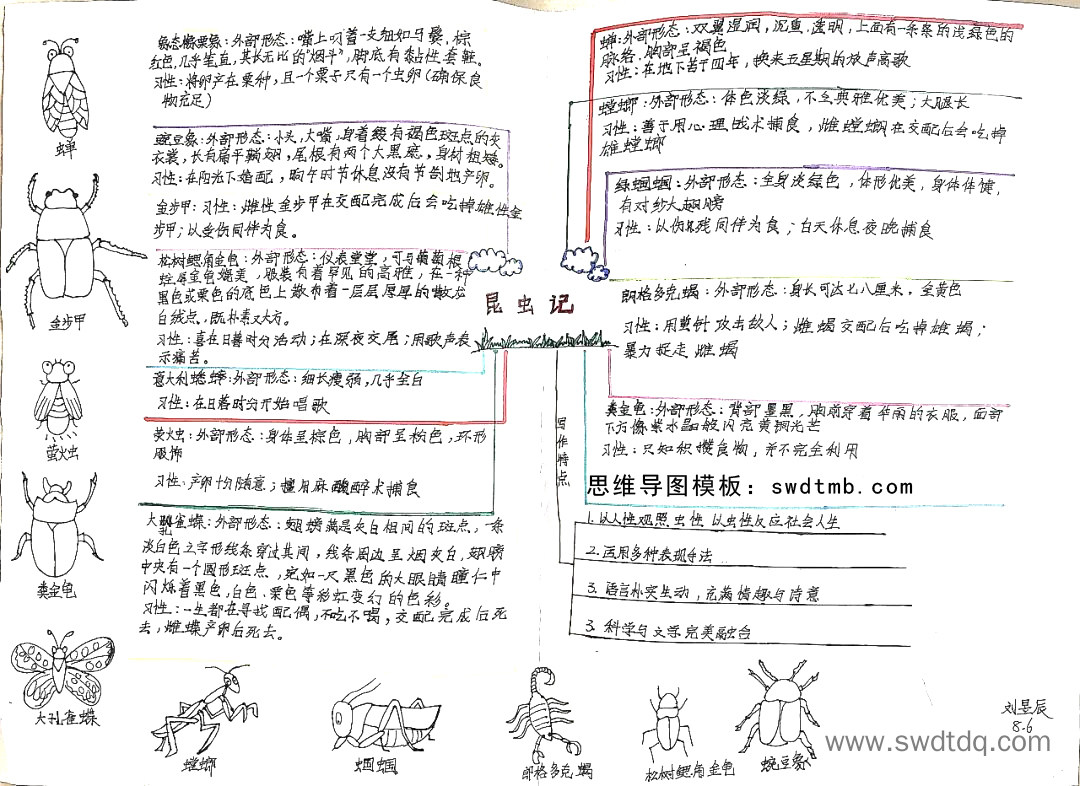 象态橡栗象：外部形态：嘴上叼着一支细如马鬃，棕
红色，几乎笔直，其长无比的"烟斗"，脚底有黏性套鞋。
习性：将卵产在栗种，且一个栗子只有一个虫卵(确保良
物充足)
豌豆象：外部形态：小头，大嘴，身着缀有褐色斑点的灰
衣裳，长有扁平鞘翅，尾根有两个大黑痣，身材粗矮。
习性：在阳光下婚配，晌午时节休息没有节制地产卵。
金步甲：习性：雌性金步甲在交配完成后会吃掉雄性金
步甲；以受伤同伴为食。
松树鳃角金龟：外部形态：仪表堂堂，可与葡萄根
蛀犀金龟媲美，服装有着罕见的高雅，在一种
黑色或栗色的底色上散布着一层层厚厚的
白绒点，既朴素又大方。
习性：喜在日暮时分活动；在深夜交尾；用歌声表
示痛苦。
意大利蟋蟀：外部形态：细长瘦弱，几乎全白
习性：在日暮时分开始唱歌
萤火虫：外部形态：身体呈棕色，胸部呈粉色，环形
服饰
习性：产卵十分随意；擅用麻醉术捕食
大孔雀蝶：外部形态：翅膀满是灰白相间的斑点，一条
淡白色之字形线条穿过其间，线条周边呈烟灰白，翅膀
中央有一个圆形斑点，宛如一只黑色的大眼睛瞳仁中
闪烁着黑色，白色，栗色等彩虹变幻的色彩。
习性：一生都在寻找配偶，不吃不喝，交配完成后死
去，雌蝶产卵后死去。
蝉：外部形态：双翼湿润，沉重，透明，上面有一条条的浅绿色的
脉络，胸部呈褐色
习性：在地下苦干四年，换来五星期的放声高歌
螳螂：外部形态：体色淡绿，不乏典雅优美；大腿长
习性：善于用心理战术捕食，雌螳螂在交配后会吃掉
雄螳螂
绿蝈蝈：外部形态：全身淡绿色，体形优美，身体体健，
有对纱大翅膀
习性：以伤残同伴为食；白天休息夜晚捕食
昆虫记
朗格多克蝎：外部形态：身长可达七八厘米，金黄色
习性：用蜇针攻击敌人；雌蝎交配后吃掉雄蝎；
暴力捉走雌蝎
粪金龟：外部形态：背部墨黑，胸前穿着华丽的衣服，面部
下方像紫水晶般闪亮黄铜光芒
习性：只知积攒食物，并不完全利用
思维导图模板：swdtmb.com
写作特点
1.以人性观照虫性 以虫性反应社会人生
2.运用多种表现手法
3.语言朴实生动，充满情趣与诗意
3.科学与文学完美融合
蝉
金步甲
萤火虫
粪金龟
大孔雀蝶
螳螂
蝈蝈
郎格多克蝎
松树鳃角金龟
豌豆象
刘昱辰
8.6
www.swdtdq.com